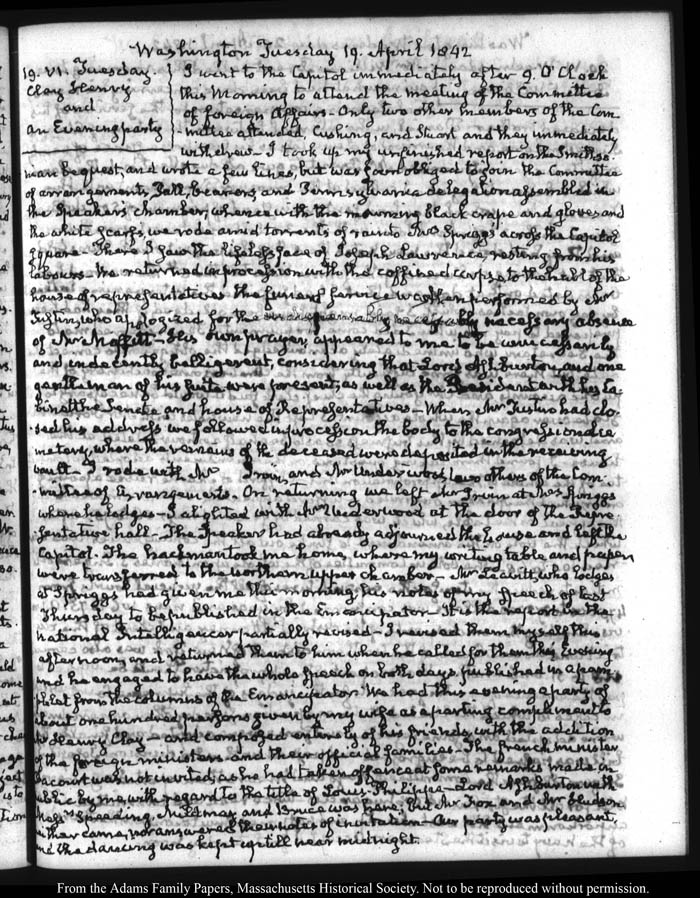 Washington Tuesday 19. April 1842
19. VI. Tuesday
Clay Henry
and
an Evening party
I went to the Capitol immediately after 9. O'Clock
this Morning to attend the meeting of the Committee
of foreign Affairs. Only two other members of the Com
mittee attended, Cushing, and Stuart and they immediately
withdrew. I took up my unfinished report on the Smithso-
nian Bequest, and wrote a few lines, but was soon obliged to join the Committee
of arrangements, Pall-bearers, and Pennsylvania delegation assembled in
the Speakers chamber, whence with the mourning black crape and gloves and
the white scarfs, we rode amid torrents of rain to Mrs Spriggs' across the Capitol
Square. There I saw the lifeless face of Joseph Lawrence, resting from his
labours. We returned in procession with the coffined corpse to the hall of the
house of representatives the funeral service was then performed by Mr
Tuston, who apologized for the necessary absence
of Mr Maffitt. His own prayer, appeared to me to be unnecessarily
and indecently belligerent, considering that Lord Ashburton, and one
gentleman of his suite were present, as well as the President with his Ca-
binet the Senate and house of Representatives. When Mr Tuston had clo-
sed his address we followed in procession the body to the congressional ce
metery, where the remains of the deceased were deposited in the receiving
vault. I rode with Mr Irwin, and Mr Underwood, two others of the Com-
mittee of Arrangements. On returning we left Mr Irwin at Mrs Spriggs
where he lodges. I alighted with Mr Underwood at the door of the Repre-
sentative hall. The Speaker had already adjourned the house and left the
Capitol. The hackman took me home, where my writing table and papers
were transferred to the northern upper chamber. Mr Leavitt, who lodges
at Spriggs had given me this morning, his notes of my speech of last
Thursday to be published in the Emancipator. It is the report in the
National Intelligencer partially revised. I revised them myself this
afternoon, and returned them to him when he called for them this Evening
and he engaged to have the whole speech on both days published in a pam
phlet from the columns of the Emancipator. We had this evening a party of
about one hundred persons given by my wife as a parting compliment to
Mr Henry Clay. and composed entirely of his friends, with the addition
of the foreign ministers and their official families. The french minister
Bacourt was not invited, as he had taken offence at some remarks made in
public by me, with regard to the title of Louis Philippe. Lord Ashburton with
Messrs Speeding, Mildmay and Bruce was here, but Mr Fox and Mr Hudson
neither came, nor answered the notes of invitation. Our party was pleasant,
and the dancing was kept up till near midnight.
From the Adams Family Papers, Massachusetts Historical Society. Not to be reproduced without permission.